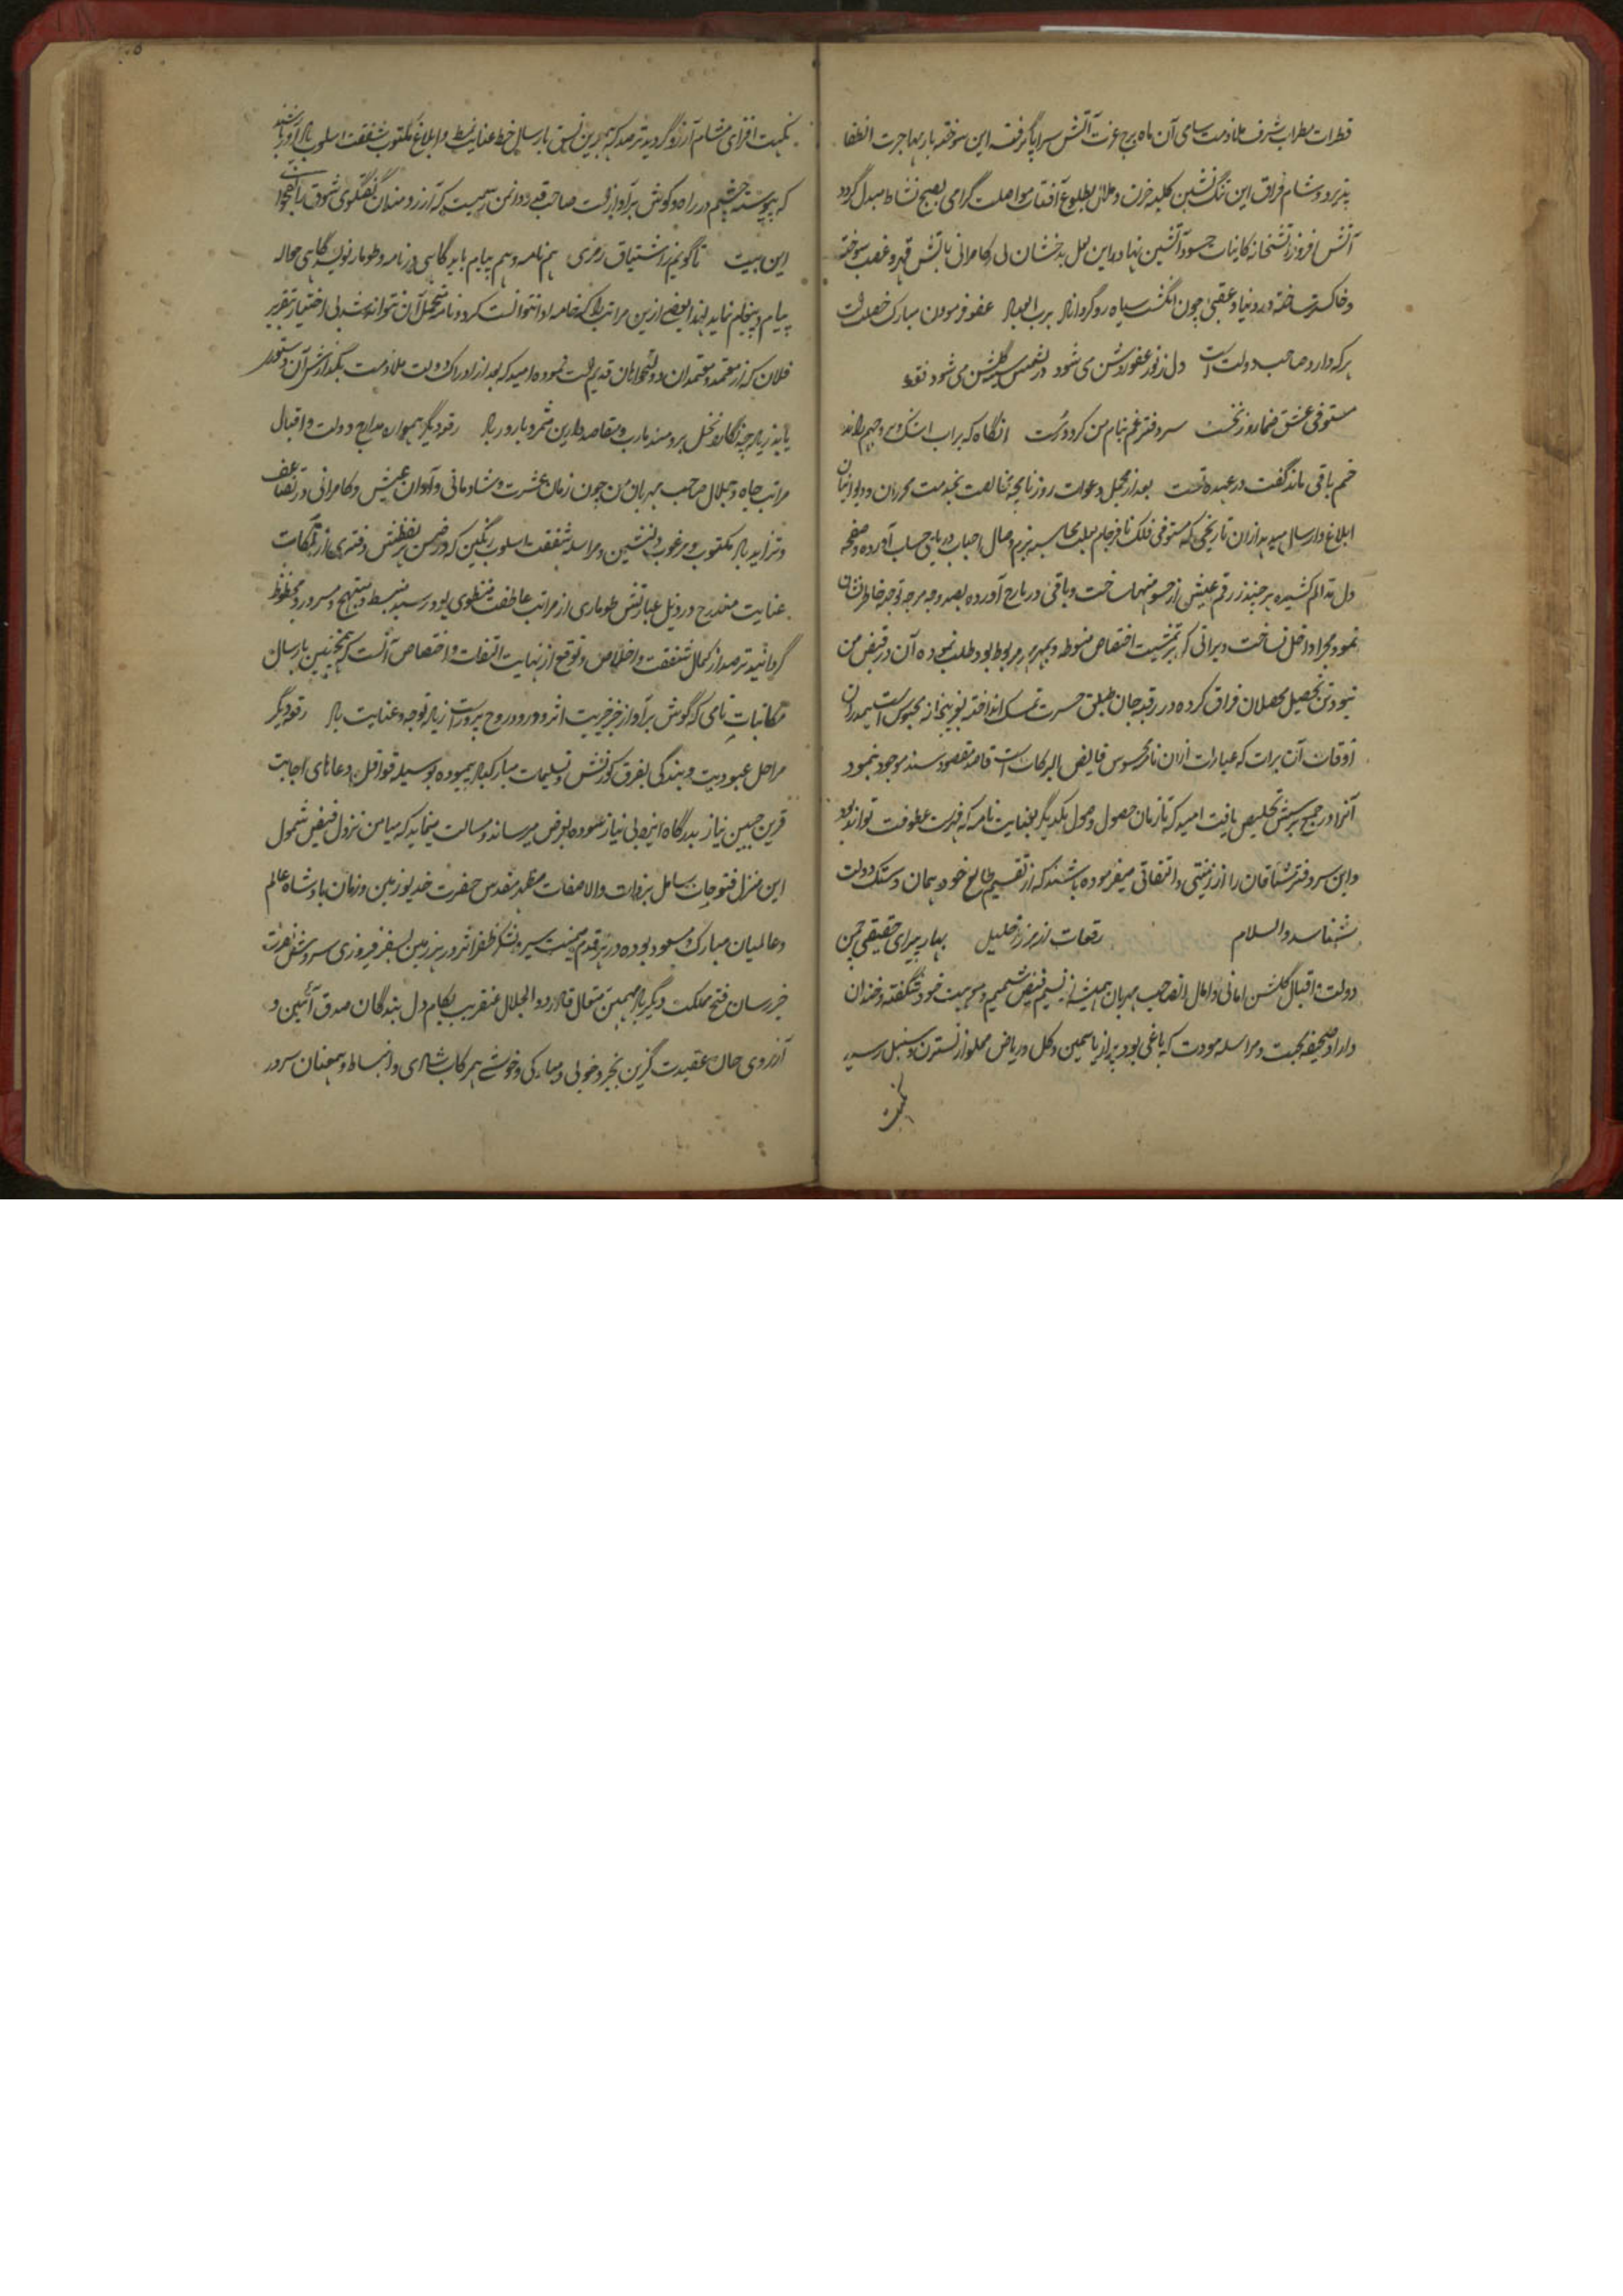 قطرات مطراب شرف ملازمت سامی آن ماه برج عزت آتش سراپا گرفته این سوخته بار مهاجرت انطفا
پذیرد و شام فراق این تنگ نشین کلبه حزن و ملال بطلوع آفتاب مواصلت گرامی بصبح نشاط مبدل گردد
آتش افروز آتشخانه کاینات حسود آتشین نهاد این لعل بدخشان کامرانی باتش قهر و غضب سوخته
و خاکستر ساخته در دنیا و عقبی چون انگشت سیاه رو گرداناد برب العباد عفو فرمودن مبارک خصلت است
هر که دارد صاحب دولت است دل ز نور عفو روشن می شود گلشن می شود
مستوفی عشق روز نخست سر دفتر غم بنام من کرد درست انگاه که براب اشک
خم باقی ماند گفت در عهده تست بعد از مجمل دعوات روزنامچه مخالصت بخدمت محرران و دیوانیان
ابلاغ و ارسال میدارد از ان تاریخی که مستوفی فلک نافرجام بزم وصال احباب حساب آورده و صفحه
دل تدالم کشیده هر چند رقم عیش از حشو منها ساخت و باقی در بارج آورده بصد وجه مرجه توجه خاطر نشان
نمود مجرا و داخل نساخت و براتی که بر تمشیت اختصاص منوط و بمهر مهر مربوط بود طلب نموده آن در قبض من
نبود تن تحصیل محصلان فراق کرده در رقبه جان طلق حسرت تمسک انداخته محبوس است
اوقات آن برات که عبارات از ان نامه فایض البرکات است قاصد مقصود سند موجود نمود
آنرا در جمع پرسش تخلیص یافت امید که تا زمان حصول وصول یکدیگر بعنایت نامه که فهرست عطوفت تواند بود
و این سر دفتر مشتاقان را از زینتی و اتفاقی میفرموده باشند که از تقسیم طالع خود همان دستک دولت
شناسد والسلام رقعات خلیل بهار پیرای حقیقی چمن
دولت و اقبال گلشن امانی و امال انصاحب مهربان همیشه از نسیم فیض شمیم موهبت خود شگفته و خندان
دارد صحیفه محبت و مراسله مودت که باغی بود پر از یاسمین و گل و ریاض مملو از نسترن و سنبل رسید
نکهت
نکهت افزای مشام آرزو گردید ترصد که بهمین نسق بارسال خط عنایت نمط و ابلاغ مکتوب شفقت اسلوب یاد آور باشند
که پیوسته چشم در راه و گوش بر آواز است صاحب قدردان من سهیست که آرزومندان گفتگوی شوق را بفحوا
این بیت تا گویم از اشتیاق رمزی هم نامه و هم پیام باید گاهی در نامه و طومار نویسد گاهی حواله
پیام و پیغام نماید لهذا بعضی ازین مراتب را که خامه ادا نتوانست کرد و نامه متحمل آن نتوانست شد بی اختیار تقریر
فلان که از معتمد و معتمدان دولتخواهان قدیم است نموده امید که بعد از ادراک دولت ملازمت بگذارش آن دستور
یابد زیاده چه نگارد نخل برومند مارب و مقاصد دارین مثمر و بارور باد رقعه دیگر همواره مدارج دولت و اقبال
مراتب جاه و جلال صاحب مهربان من چون زمان عشرت و شادمانی و آوان عیش و کامرانی در تضاعف
و تزاید باد مکتوب مرغوب دلنشین و مراسله شفقت اسلوب رنگین که در ضمن هر لفظش دفتری از
عنایت مندرج و در ذیل عبارتش طوماری از مراتب عاطفت منطوی بود رسید منبسط و مبتهج و مسرور و محظوظ
گردانید ترصد از کمال شفقت و اخلاص و توقع از نهایت التفات و اختصاص آنست که همچنین بارسال
مکاتبات نامی که گوش بر آواز خبر خیریت اثر و ورود روح پرور است زیاده توجه و عنایت باد رقعه دیگر
مراحل عبودیت و بندگی بفرق کورنش و تسلیمات مبارکباد پیموده بوسیله قوافل دعاهای اجابت
قرین جبین نیاز بدرگاه ایزد بی نیاز سوده بعرض میرساند و مسالت مینماید که میامن نزول فیض شمول
این منزل فتوحات شامل بر ذات والا صفات مظهر مقدس حضرت خدیو زمین و زمان بادشاه عالم
و عالمیان مبارک و مسعود بوده در هر قدم میمنت سیر و لشکر ظفر اثر در هر زمین بسفر فیروزی
خبر رسان فتح مملکت دیگر باد مهیمن متعال قادر ذو الجلال عنقریب بکام دل بندگان صدق آئین و
آرزوی جان عقیدت گزین بخیر و خوبی و مبارکی و خوشی همرکاب شادی و انبساط و همعنان سرور